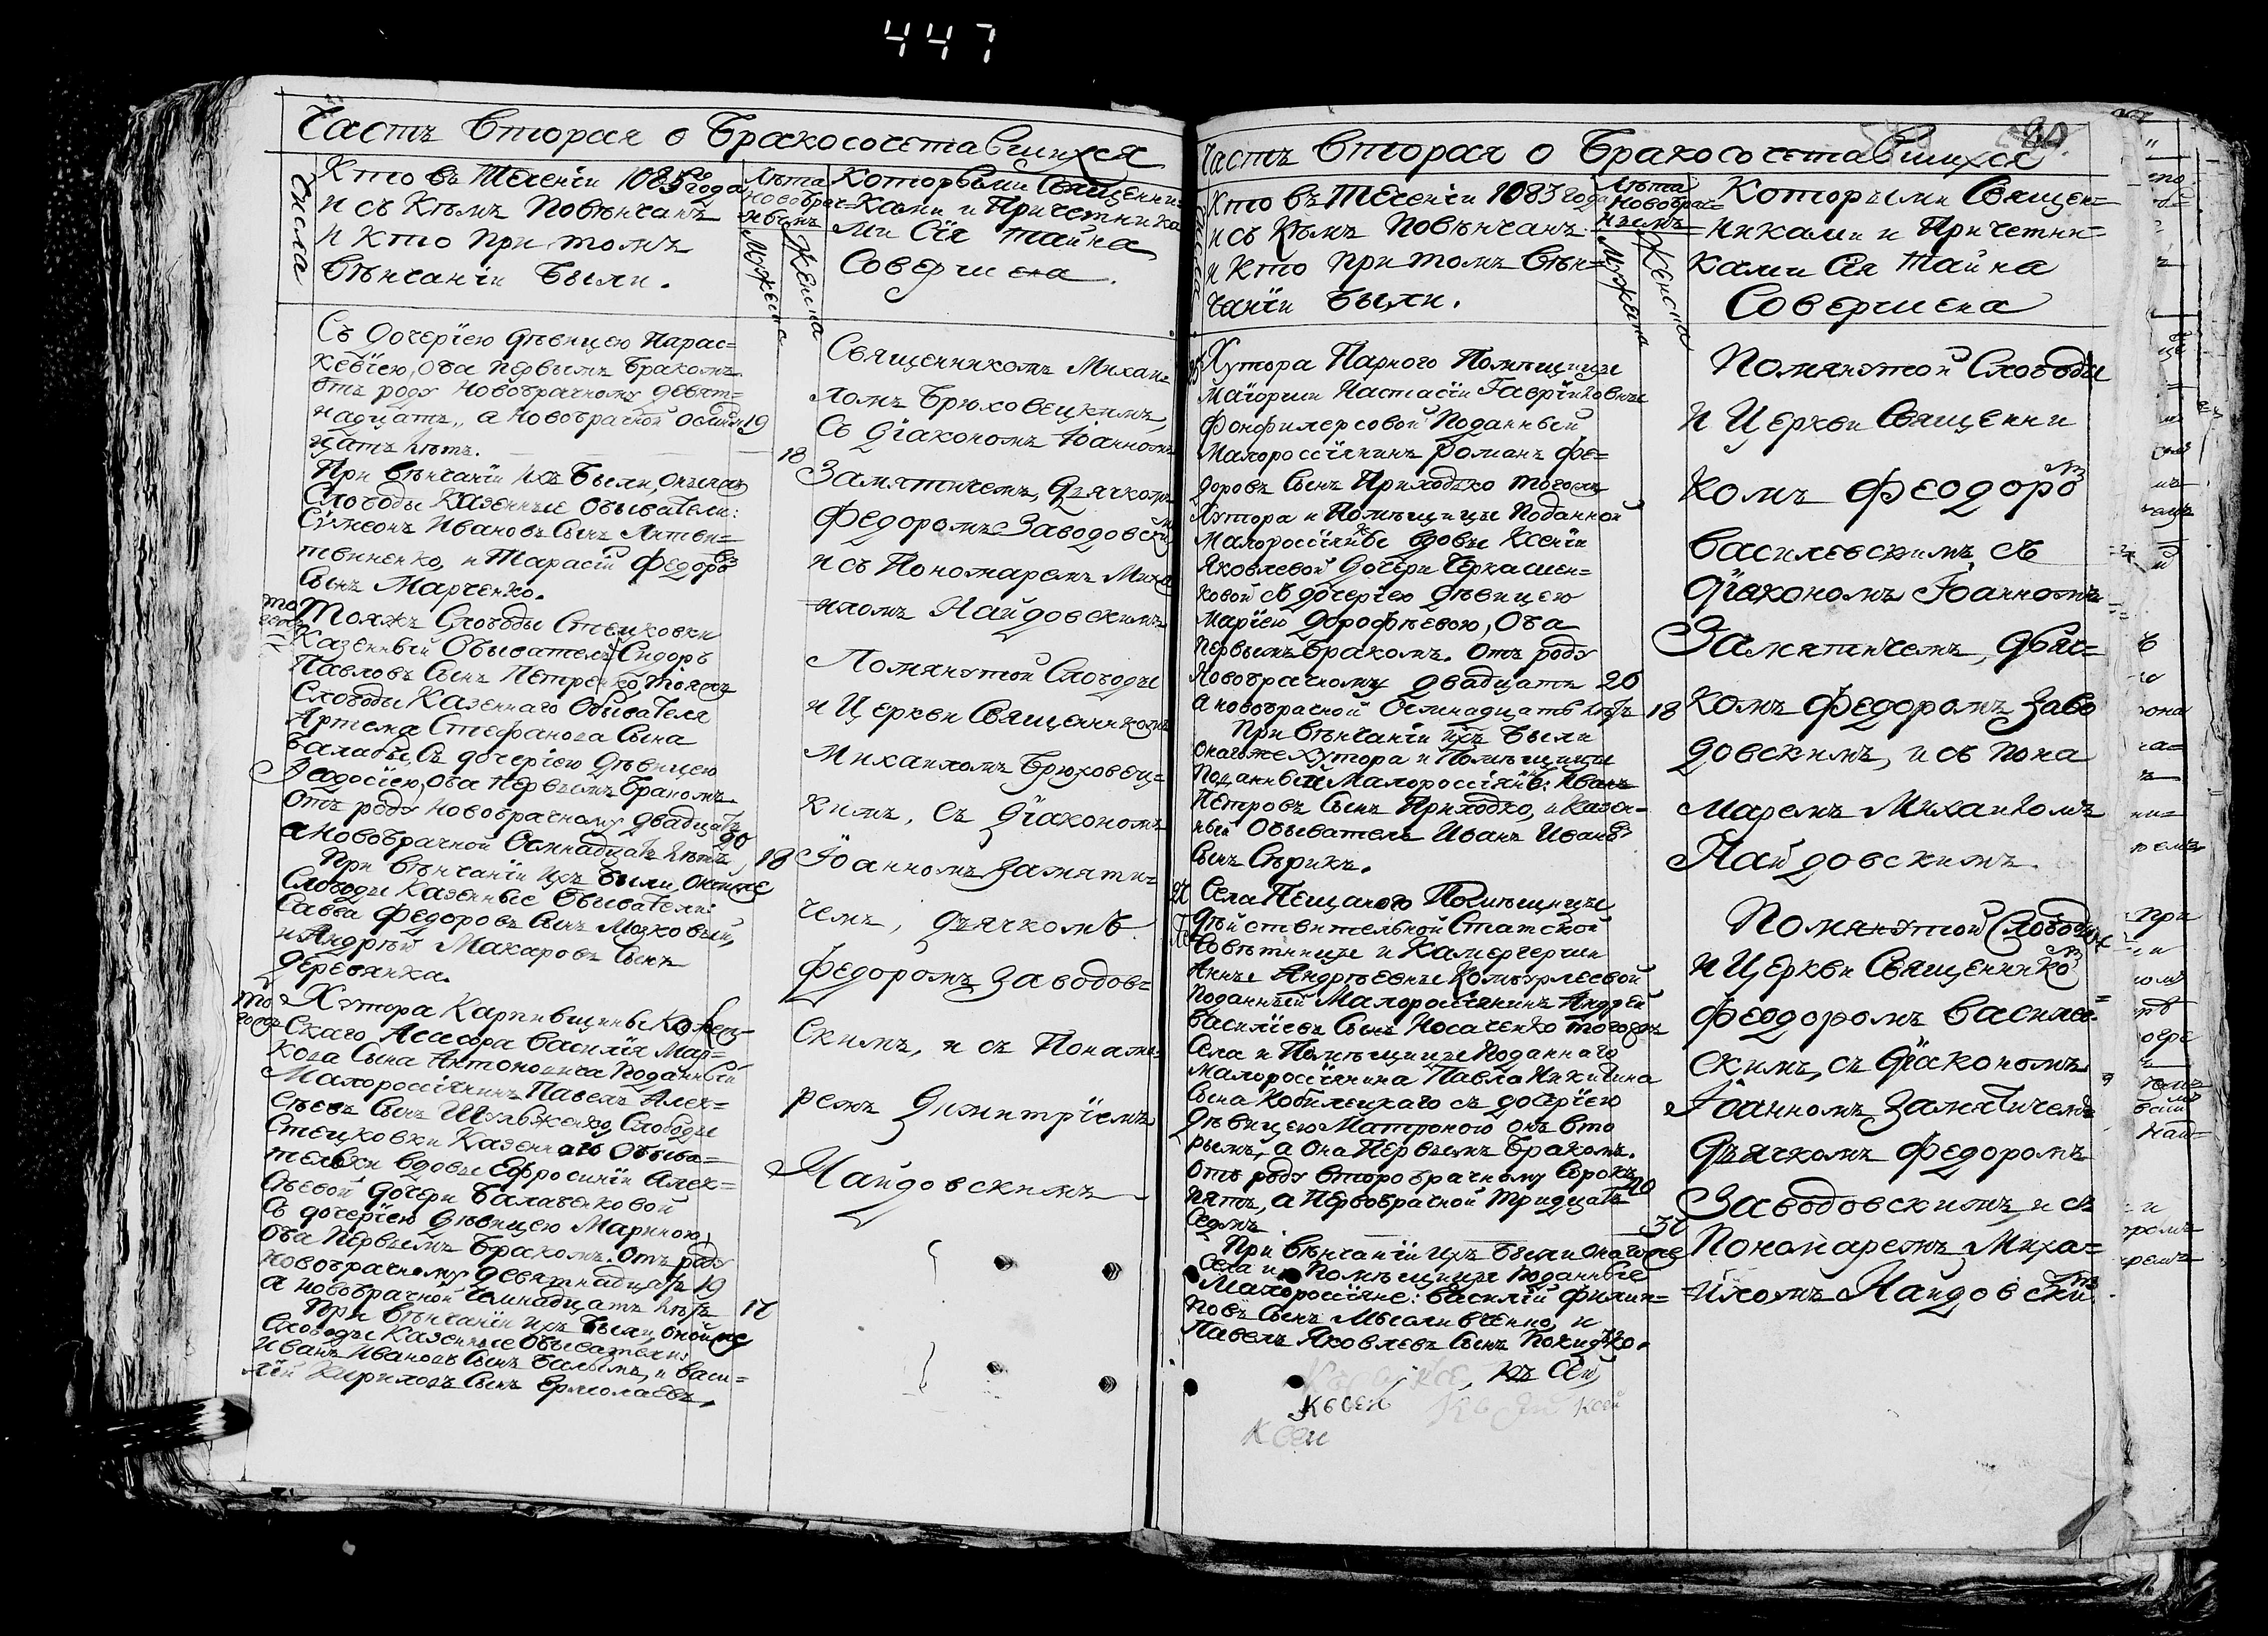 447
Часть Вторая о Бракосочетавшихся
Числа
Кто въ Теченіи 1083 года
и съ Кѣмъ Повѣнчанъ
и Кто при томъ
Вѣнчаніи Были.
Лѣта
новобрач=
нымъ
Мужеска
Женска
Которыми Священни=
ками и Причетника
ми Сія тайна
Совершена.
Съ Дочеріею дѣвицею Парас=
кевіею, Оба первымъ бракомъ.
отъ роду новобрачному девят=
надцать, а новобрачной осьмнад 19
цать лѣтъ. 18
При вѣнчаніи ихъ были, оныяжъ
Слободы Казенные Обыватели:
Сѵмеонъ Ивановъ Сынъ Литви=
твиненко, и Тарасій Федоровъ
Сынъ Марченко.
Священникомъ Михаи=
ломъ Брюховецкимъ,
Съ Діакономъ Іоанномъ
Замятичемъ, Дьячкомъ
Федоромъ Заводовским
и съ Пономаремъ Миха
иломъ Найдовскимъ
того
Тояжъ Слободы Стецковки
Казенный Обыватель Сидоръ
Павловъ Сынъ Петренко, тояжъ
Слободы Казеннаго Обывателя
Артема Стефанова Сына
Балабы, Съ дочеріею дѣвицею
Феодосіею, оба первымъ бракомъ.
Отъ роду новобрачному двадцать 20
а новобрачной Осмнадцать лѣтъ, 18
При вѣнчаніи ихъ были, оныяже
Слободы Казенные Обыватели:
Савва Федоровъ Сынъ Мозковый,
и Андрѣй Макаровъ Сынъ
Деревянка.
Помянутой Слободы
и Церкви Священникомъ
Михаиломъ Брюховец=
кимъ, Съ Діакономъ
Іоанномъ Замяти=
чемъ, дьячкомъ
Федоромъ Заводов=
скимъ, и съ Понама=
ремъ Димитріемъ
Найдовскимъ
того
Хутора Карпивщины Колеж
Скаго Асесора Василія Мар=
кова Сына Антоновича Поданный
Малороссіянинъ Павелъ Алек=
сѣевъ Сынъ Шульженко, Слободы
Стецковки Казеннаго Обыва=
тельки вдовы Ефросиніи Алек=
сѣевой дочери Балабенковой
Съ дочеріею дѣвицею Мариною,
Оба первымъ бракомъ. Отъ роду
новобрачному девятнадцать 19
а новобрачной Семнадцать лѣтъ 17
При вѣнчаніи ихъ были, оной же
Слободы Казенные Обыватели:
Иванъ Ивановъ Сынъ и Васи=
лій Кириловъ Сынъ Ермолаевъ.
Часть Вторая о Бракосочетавшихся
Кто въ Теченіи 1083 года
и съ Кѣмъ Повѣнчанъ
и Кто при томъ Вѣн=
чаніи были.
Лѣта
Новобрач=
нымъ
Мужеска
Женска
Которыми Священ=
никами и Причетни=
ками Сія Тайна
Совершена
Хутора Парного Помѣщицы
Маіорши Настасіи Гавріиловны
Фонфилерсовой Поданный
Малороссіянинъ Романъ Фе=
доровъ Сынъ Приходько того жъ
Хутора и Помѣщицы Поданной
Малороссіянки вдовы Ксеніи
Яковлевой дочери Черкашен=
ковой съ дочеріею дѣвицею
Маріею Дорофѣевою, Оба
первымъ бракомъ. Отъ роду
Новобрачному двадцать 20
а новобрачной Осмнадцать лѣтъ 18
При вѣнчаніи ихъ были
Онагоже Хутора и Помѣщицы
Поданный Малороссіянинъ Иванъ
Петровъ Сынъ Приходко, и Казен=
ный Обыватель Иванъ Ивановъ
Сынъ Сѣрикъ.
Помянутой Слободы
и Церкви Священни
комъ Феодоромъ
Василевскимъ съ
Діакономъ Іоанномъ
Замятичемъ, дьяч=
комъ Федоромъ Заво
довскимъ, и съ пона
маремъ Михаиломъ
Найдовскимъ.
Села Пещаного Помѣщицы
Дѣйствительной Статской
Совѣтницы и Камергерши
Анны Андрѣевны
Поданный Малороссіянинъ Андрей
Василіевъ Сынъ Носаченко тогожъ
Села и Помѣщицы Поданнаго
Малороссіянина Павла Никитина
Сына Кобилецкаго съ дочеріею
Дѣвицею Матроною онъ вто
рымъ, а Она Первымъ бракомъ.
Отъ роду второбрачному Сорокъ 40
пять, а первобрачной тридцать
седмъ 37
При вѣнчаніи ихъ были Онагоже
Села и Помѣщицы Поданные
Малороссіяне: Василій Филип=
повъ Сынъ Мысливченко, и
Павелъ Яковлевъ Сынъ Покидко.
Помянутой Слободы
и Церкви Священникомъ
Феодоромъ Василев=
скимъ, съ Діакономъ
Іоанномъ Замятичемъ
Дьячкомъ Федоромъ
Заводовскимъ, и съ
Пономаремъ Миха=
иломъ Найдовскимъ
къ сей
къ сей
к сей